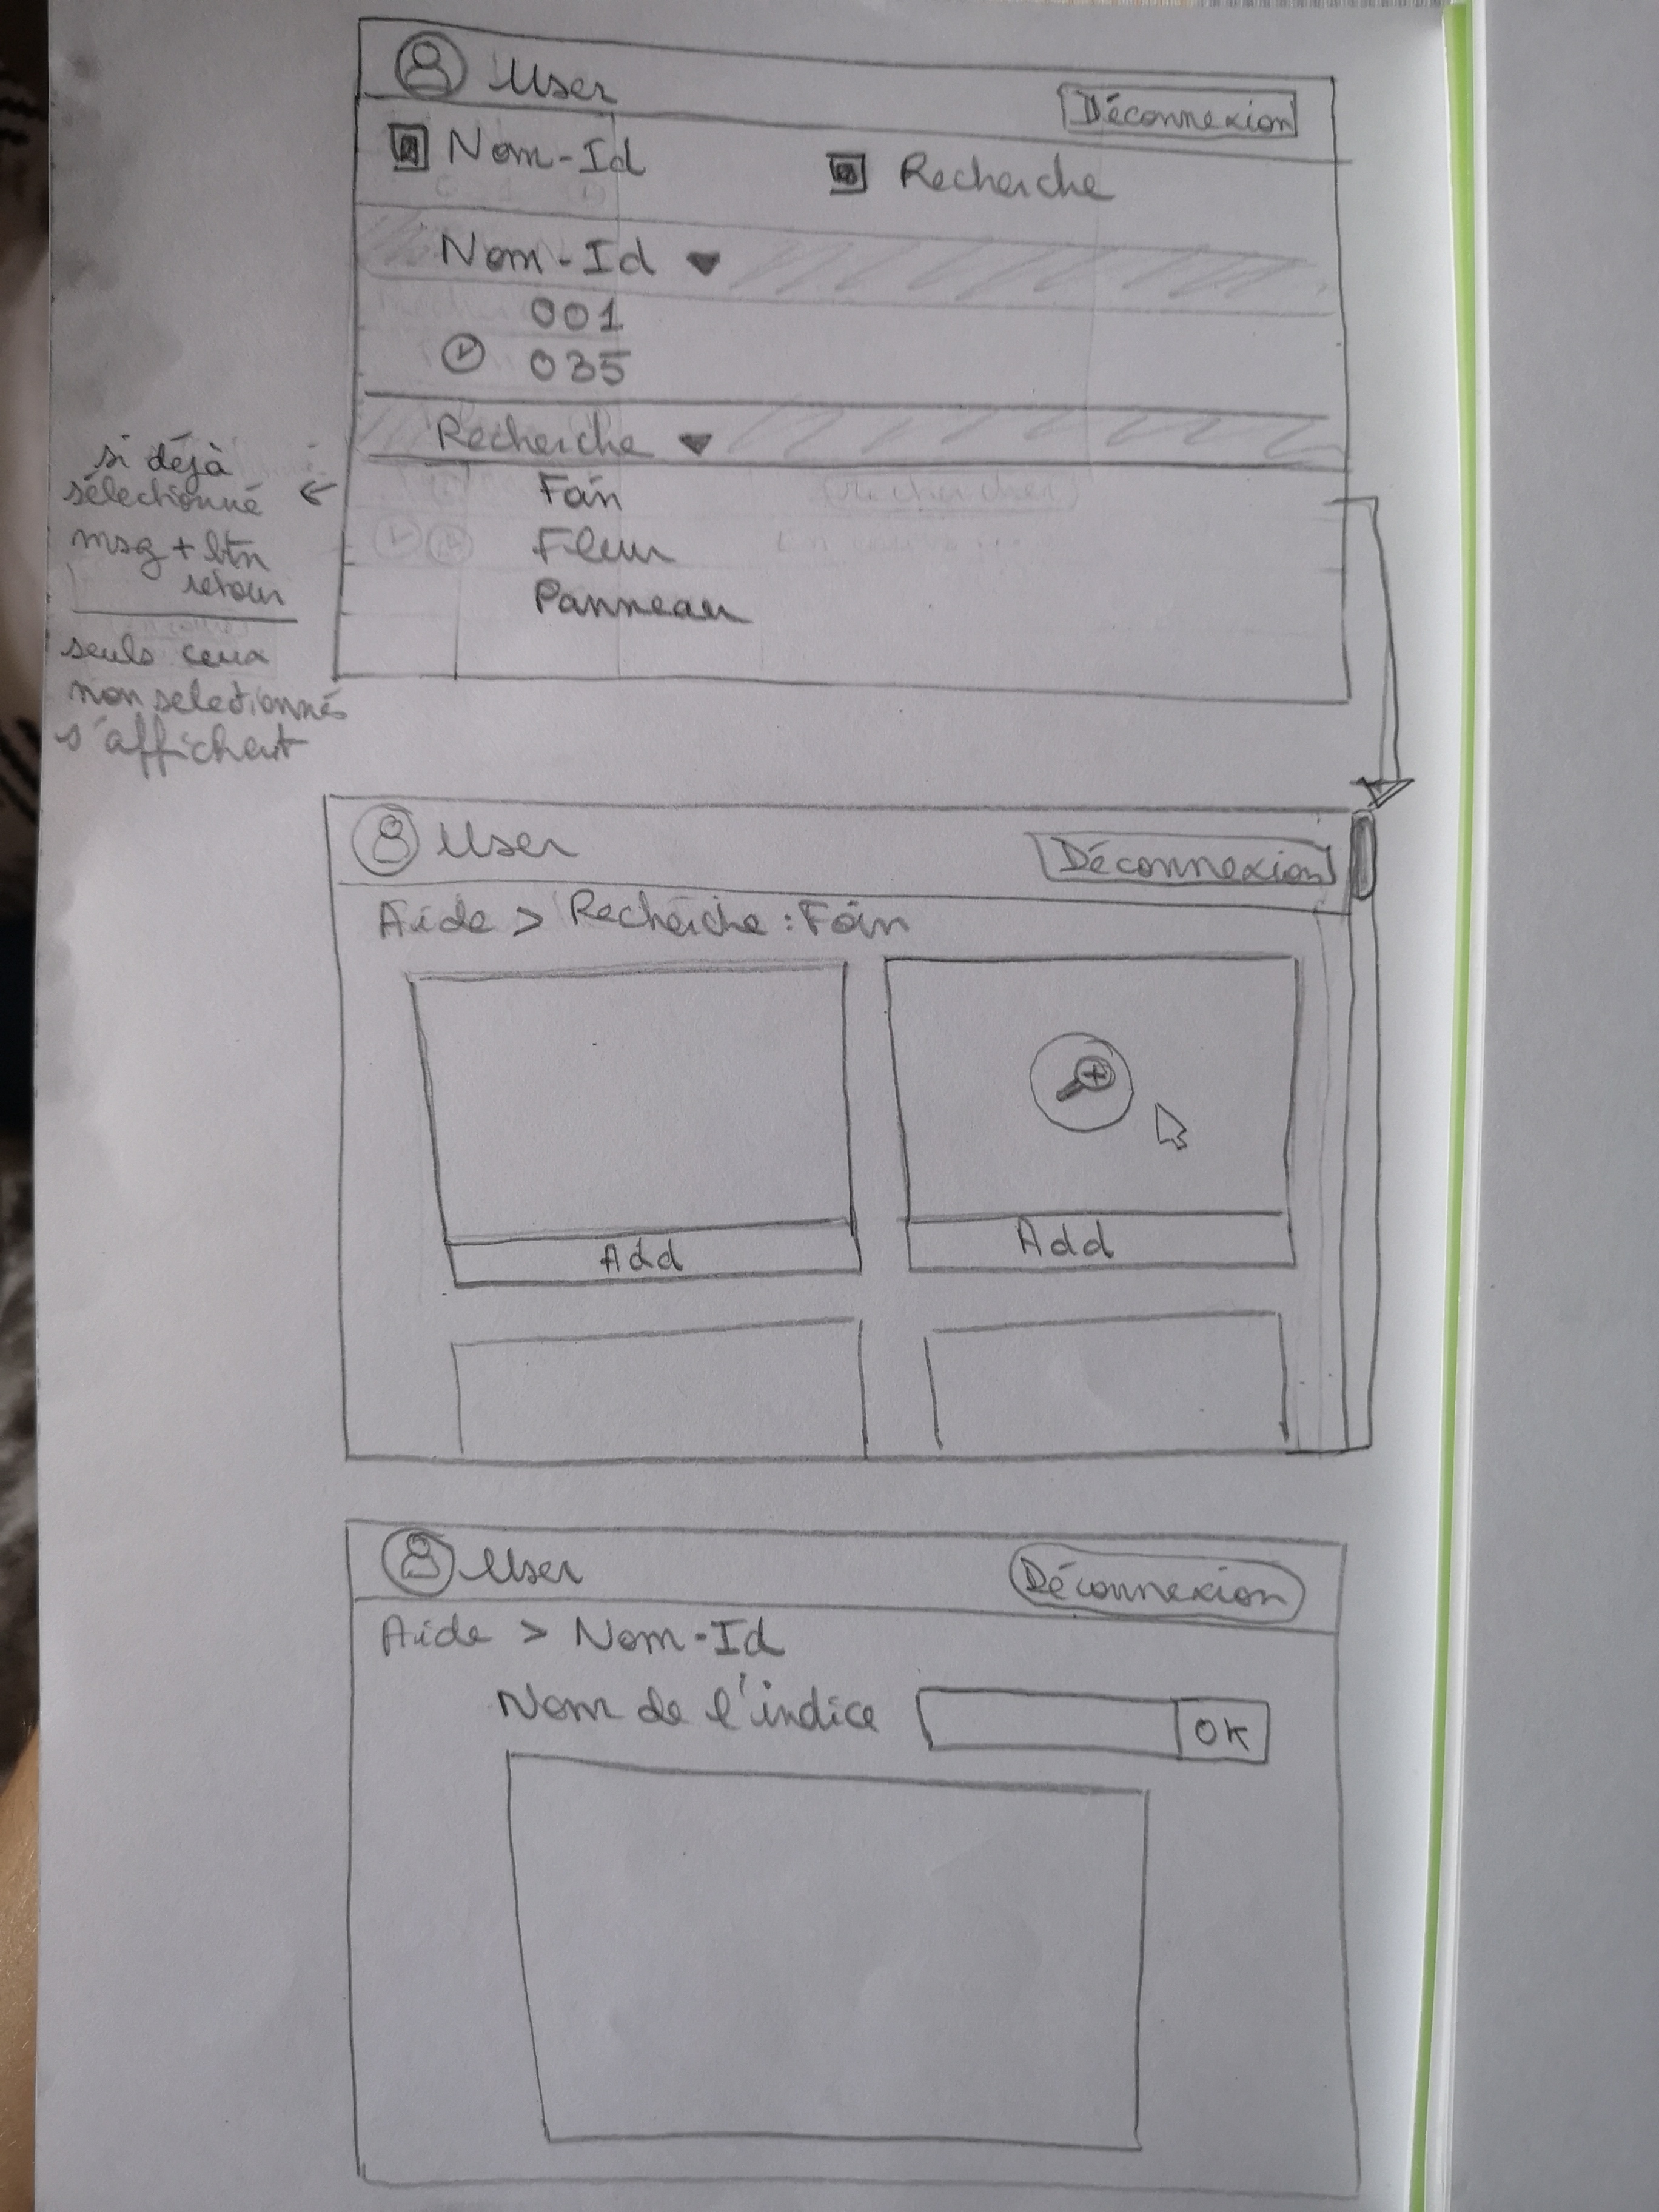 User
Déconnexion
Nom-Id
Recherche
Nom-Id
001
035
Recherche
Foin
Fleur
Panneau
si déjà
sélectionné
msg + btn
retour
seuls ceux
non selectionnés
s'affichent
User
Déconnexion
Aide > Recherche : Foin
Add
Add
User
Déconnexion
Aide > Nom-Id
Nom de l'indice
OK